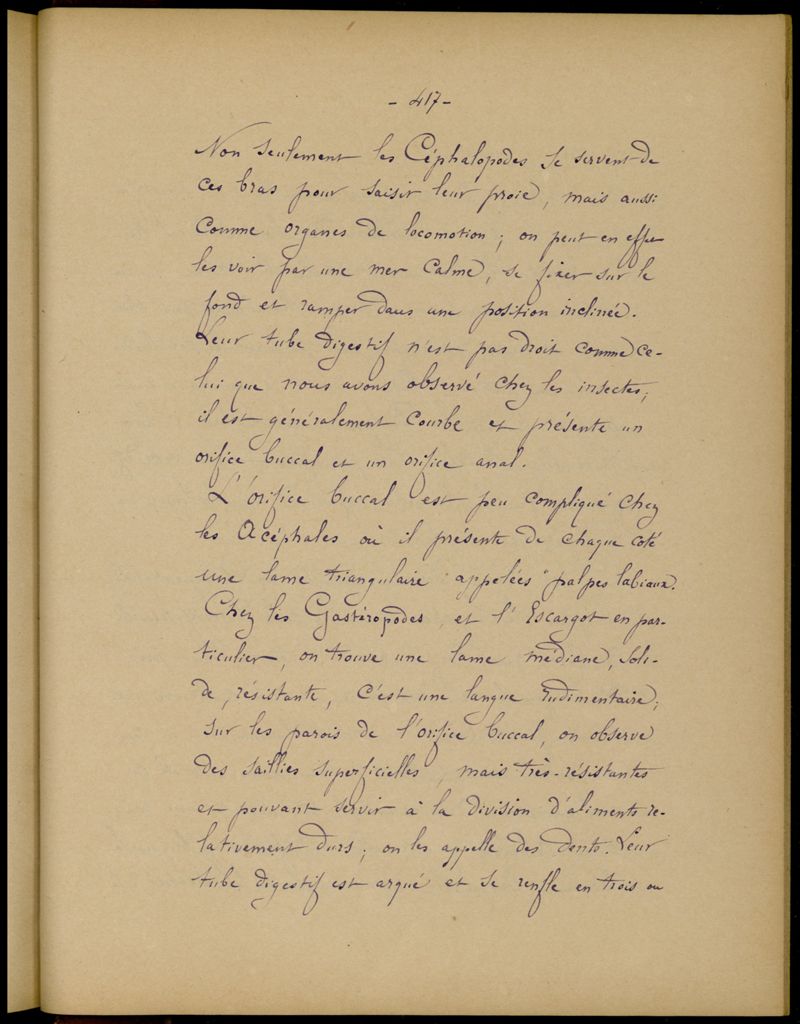 - 417 -
Non seulement les Céphalopodes se servent de
ces bras pour saisir leur proie, mais aussi
comme organes de locomotion ; on peut en effet
les voir par une mer calme, se fixer sur le
fond et ramper dans une position inclinée.
Leur tube digestif n'est pas droit comme ce-
lui que nous avons observé chez les insectes ;
il est généralement courbe et présente un
orifice buccal et un orifice anal.
L'orifice buccal est peu compliqué chez
les Acéphales où il présente de chaque coté
une lame triangulaire appelées "palpes labiaux.
Chez les Gastéropodes, et l'Escargot en par-
ticulier, on trouve une lame médiane, soli-
de, résistante, c'est une langue rudimentaire ;
sur les parois de l'orifice buccal, on observe
des saillies superficielles, mais très-résistantes
et pouvant servir à la division d'aliments re-
lativement durs ; on les appelle des dents. Leur
tube digestif est arqué et se renfle en trois ou